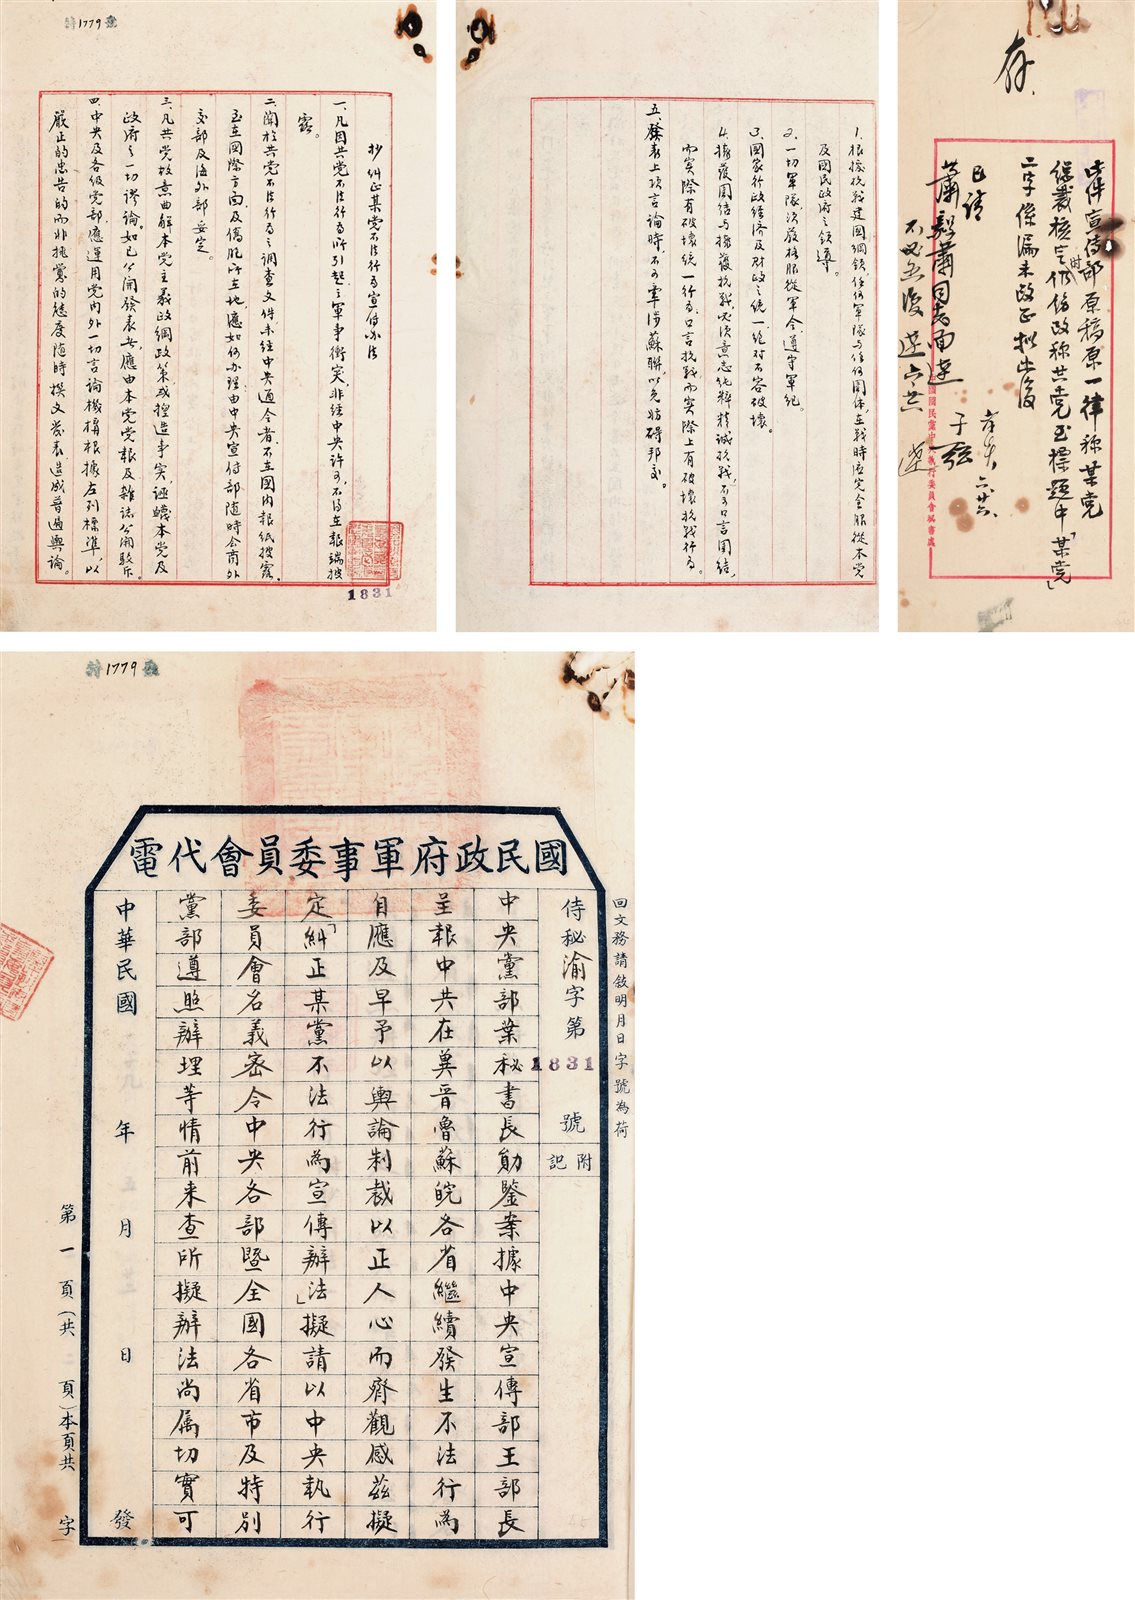 特1779號
抄糾正某党不法行為宣傳办法
一、凡因共党不法行為所引起之軍事衝突，非經中央許可，不得在報端披
露。
二、關於共党不法行為之調查文件未經中央通令者，不在國內報紙披露。
至在國際方面及僑胞所在地，應如何办理，由中央宣传部随時会商外
交部及海外部妥定。
三、凡共党故意曲解本党主義政綱政策或捏造事实，誣衊本党及
政府之一切謬論。如已公開發表者，應由本党党報及雜誌公開駁斥。
四、中央及各級党部，應運用党內外一切言論機構根據左列標準，以
嚴正的忠告的而非挑釁的態度随時撰文发表造成普遍輿論。
1831
1. 根據抗戰建國綱領，任何軍隊与任何團体，在戰時應完全服從本党
及國民政府之領導。
2. 一切軍隊，須嚴格服從軍令，遵守軍紀。
3. 國家行政經济及財政之統一，絕对不容破壞。
4. 擁護團結与擁護抗戰，必須意志純粹精誠抗戰，不可口言團結，
而实際有破壞統一行為，口言抗戰而实際上有破壞抗戰行為。
五、發表上項言論時，不可牽涉蘇聯，以免妨碍邦交。
存
此件宣傳部原稿原一律称某党
總裁核定時仍修改称共党至標題中「某党」
二字係漏未改正拟照復
六廿六
已請
蕭毅肅同志面達
不必函復
國國民黨中央執行委員會秘書處
特1779號
國民政府軍事委員會代電
回文務請敘明月日字號為荷
侍秘渝字第1831號
附記
中央黨部葉秘書長勛鑒案據中央宣傳部王部長
呈報中共在冀晉魯蘇皖各省繼續發生不法行為
自應及早予以輿論制裁以正人心而齊觀感茲擬
定「糾正某黨不法行為宣傳辦法」擬請以中央執行
委員會名義密令中央各部暨全國各省市及特別
黨部遵照辦理等情前来查所擬辦法尚属切實可
中華民國廿九年五月廿三日發
第一頁（共二頁）本頁共字